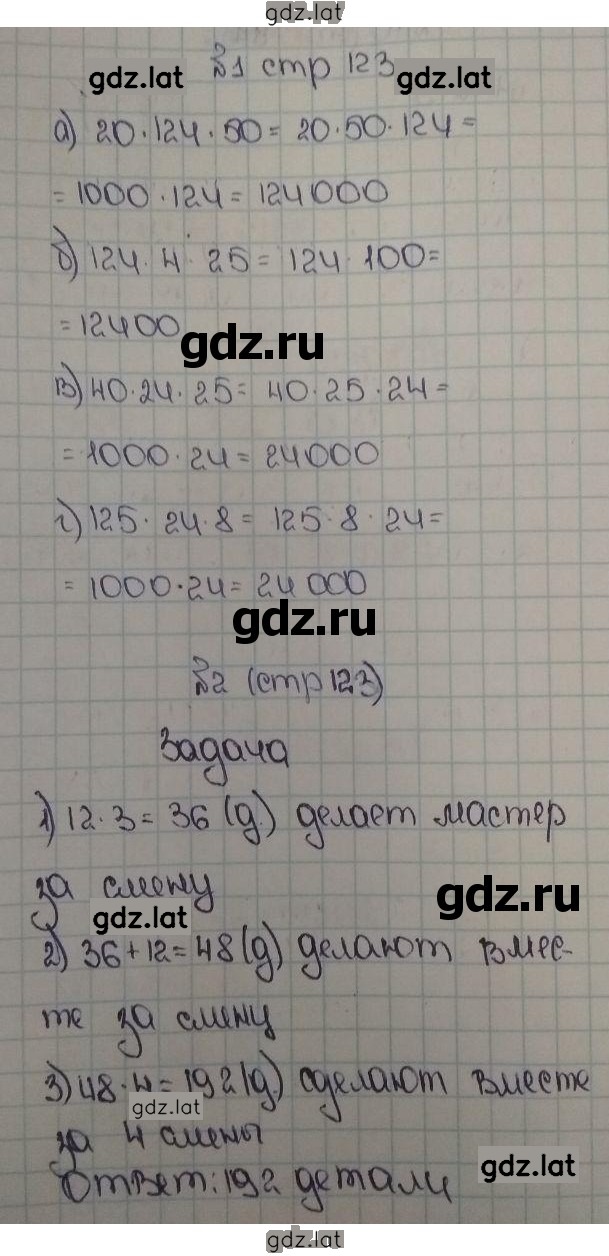 gdz.lat
№1 стр 123
gdz.lat
а) 20·124·50= 20·50·124=
=1000·124=124000
б)124·4·25=124·100=
=12400
gdz.ru
в)40·24·25=40·25·24=
=1000·24=24000
г)125·24·8=125·8·24=
=1000·24=24 000
gdz.ru
№2 (стр 123)
Задача
1)12·3=36(д.) делает мастер
за смену
gdz.ru
gdz.lat
2) 36+12=48(д) делают вмес-
те за смену
3)48·4=192(д.) сделают вместе
gdz.lat
за 4 смены
gdz.lat
Ответ:192 детали
gdz.lat